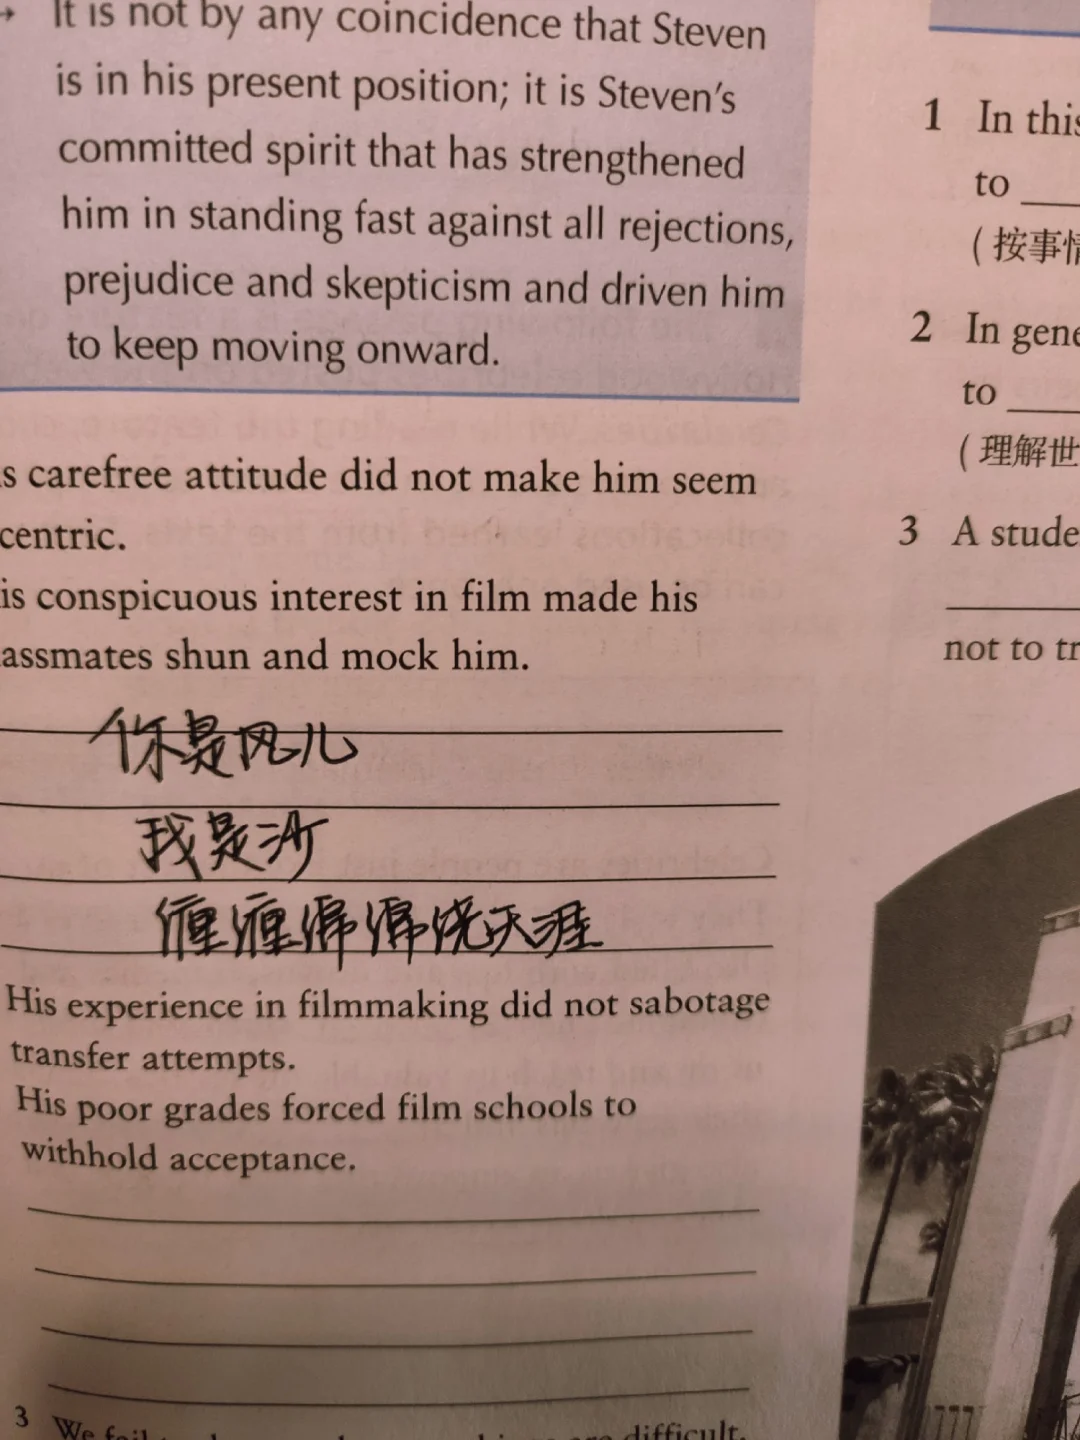 It is not by any coincidence that Steven
is in his present position; it is Steven's
committed spirit that has strengthened
him in standing fast against all rejections,
prejudice and skepticism and driven him
to keep moving onward.
carefree attitude did not make him seem
conspicuous interest in film made his
shun and mock him.
你是风儿
我是沙
缠缠绵绵绕天涯
His experience in filmmaking did not sabotage
transfer attempts.
His poor grades forced film schools to
withhold acceptance.
3 We
difficult.
1 In
to
(按事
2 In
to
(理解世
3 A
not to